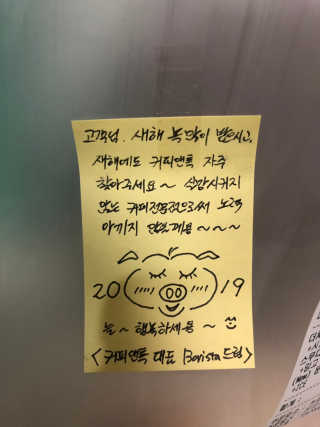 고객님. 새해 복 많이 받으시고,
새해에도 커피앤톡 자주
찾아주세요~ 실망시키지
않는 커피전문점으로써 노력
아끼지 않을께용~~~
2019
늘~ 행복하세용 ~
<커피앤톡 대표 Barista 드림>